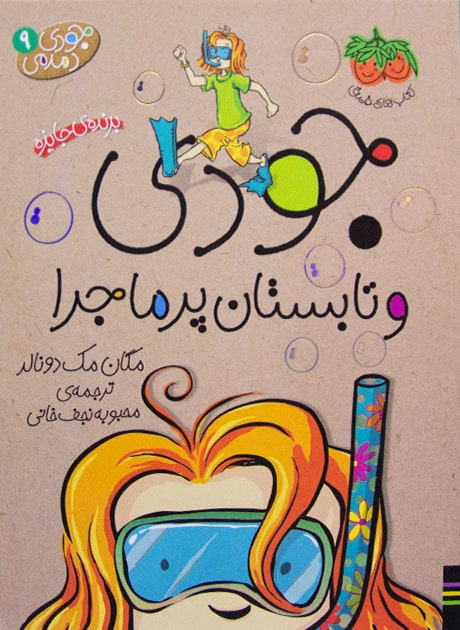 جودی
دمدمی
۹
کتاب‌های فندق
برنده‌ی جایزه
جودی
و تابستان پرماجرا
مگان مک دونالد
ترجمه‌ی
محبوبه نجف‌خانی